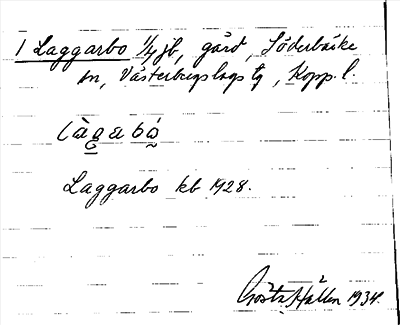 1 Laggarbo 1/4 jb, gård, Söderbärke
sn, Västerbergslags tg, Kopp. l.
làgabó
Laggarbo kb 1928.
Gösta Hallén 1934.